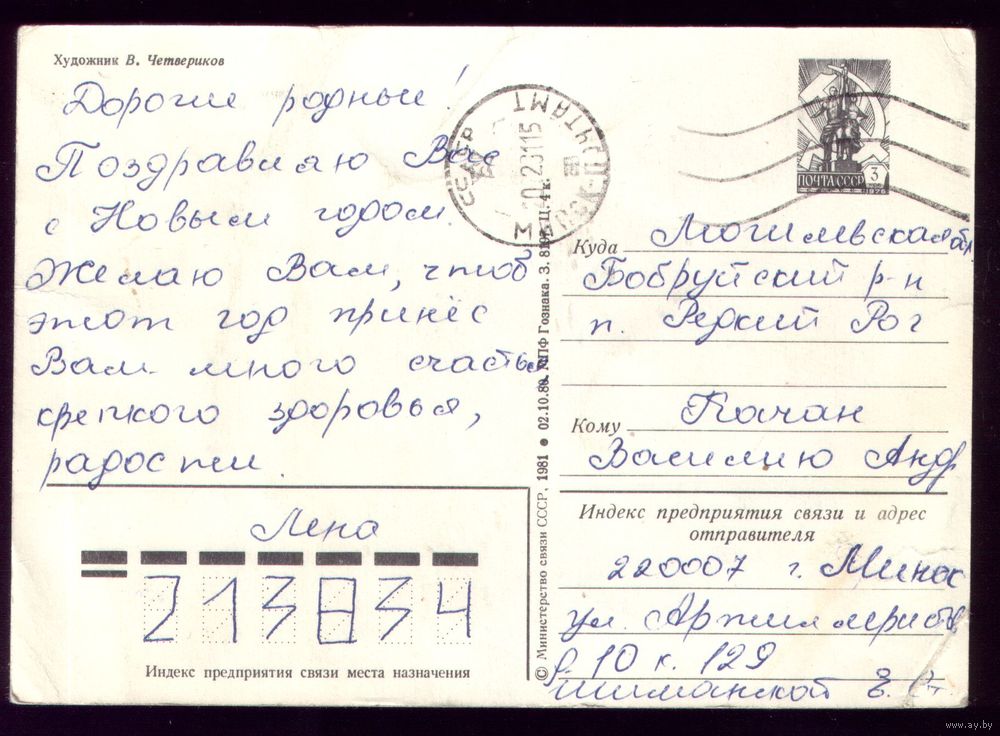 Художник В. Четвериков
Дорогие родные!
Поздравляю Вас
с Новым годом.
Желаю Вам, чтоб
этот год принёс
Вам много счастья
крепкого здоровья,
радости.
Лена
213834
Индекс предприятия связи места назначения
© Министерство связи СССР, 1981 ● 02.10.80. МПФ Гознака. З. Ц. 4 к.
СССР
ПОЧТАМТ
ПОЧТА СССР
3
1976
Куда Могилевская обл.
Бобруйский р-н
п. Редкий Рог
Кому Качан
Василию Андр
Индекс предприятия связи и адрес
отправителя
220007 г. Минск
ул. Артиллеристов
д. 10 к. 129
Шиманской Е.
www.ay.by